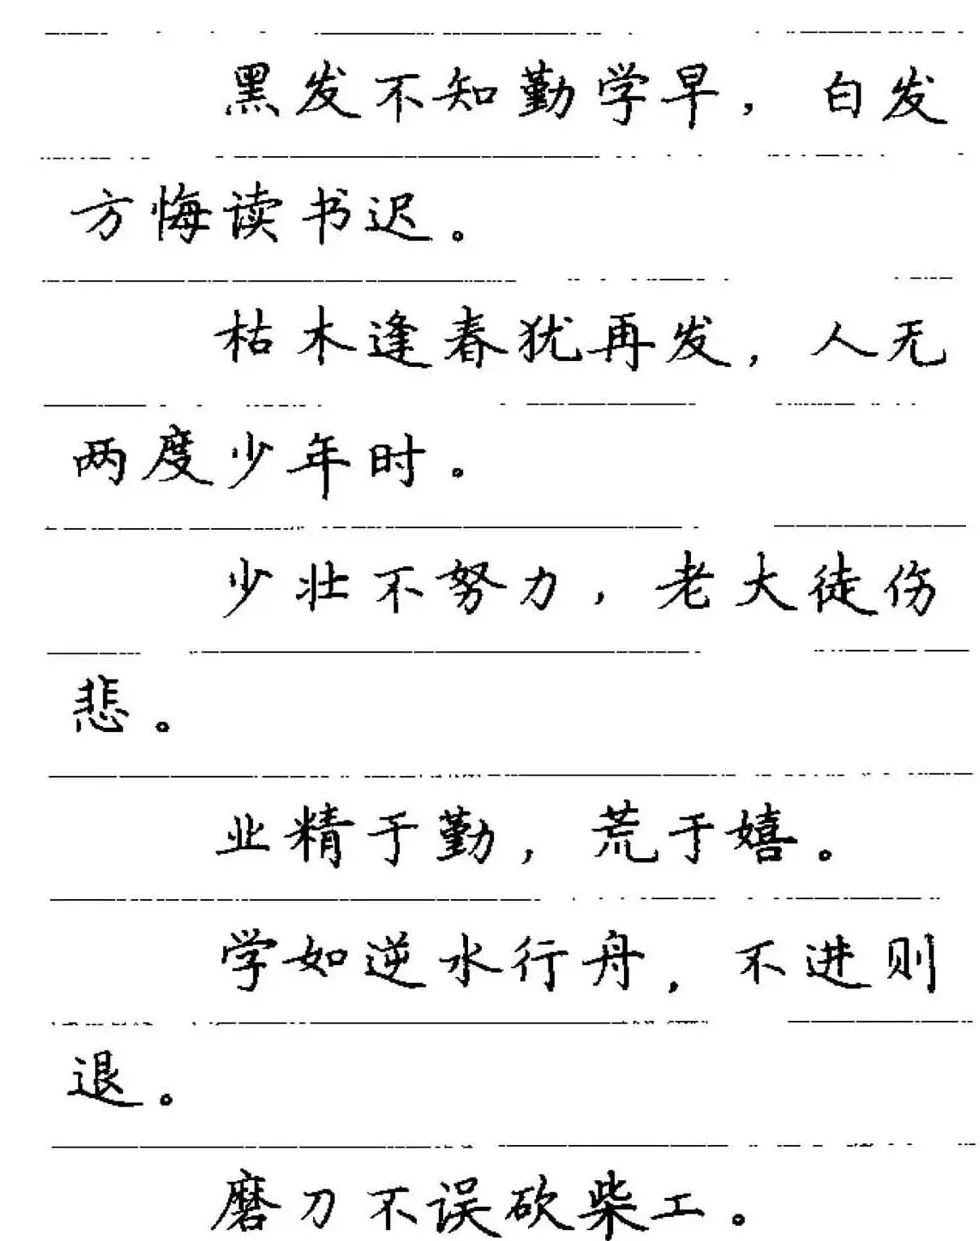 黑发不知勤学早，白发
方悔读书迟。
枯木逢春犹再发，人无
两度少年时。
少壮不努力，老大徒伤
悲。
业精于勤，荒于嬉。
学如逆水行舟，不进则
退。
磨刀不误砍柴工。